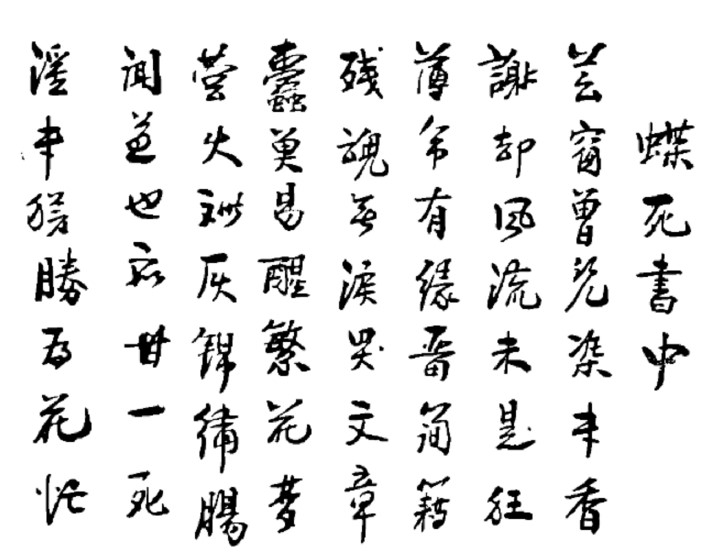 蝶死書中
芸窗曾染書香
謝却風流未是狂
薄命有緣留簡籍
残魂無淚哭文章
蠹魚易醒繁花夢
螢火難灰錦繡腸
聞道也應甘一死
淫書猶勝為花忙